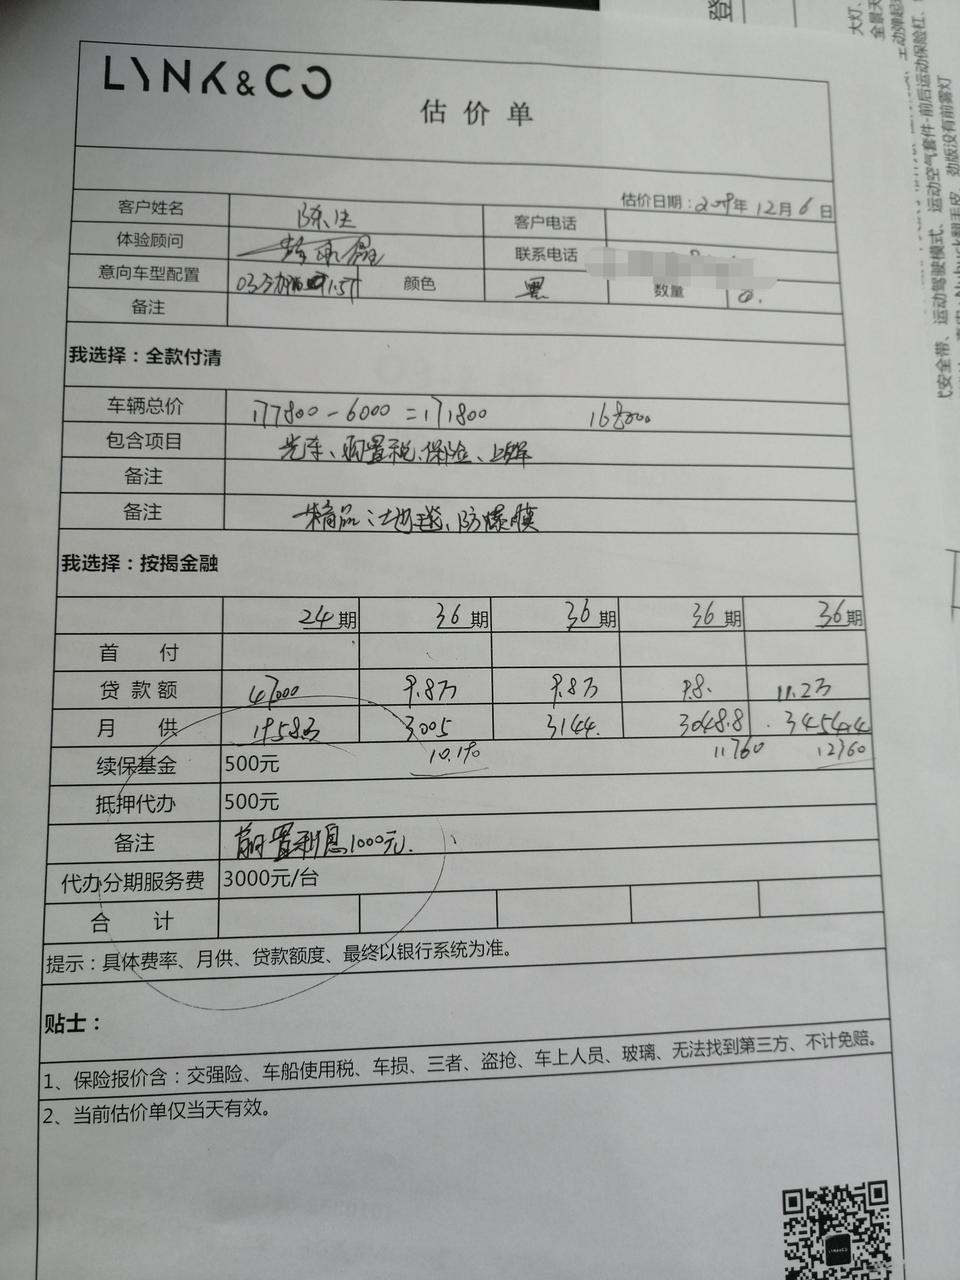 LYNK&CO
估价单
估价日期：2019年12月6日
客户姓名 陈生 客户电话
体验顾问 联系电话
意向车型配置 03 1.5T 颜色 黑 数量
备注
我选择：全款付清
车辆总价 177800-6000=171800 168000
包含项目 光车、购置税、保险、上牌
备注
备注 精品：地毯、防爆膜
我选择：按揭金融
24期 36期 36期 36期 36期
首 付
贷款额 47000 9.8万 9.8万 9.8. 11.2万
月 供 1958.3 3005 3144. 3048.8 3454.4
续保基金 500元 10.1% 11760 12760
抵押代办 500元
备注 前置利息1000元.
代办分期服务费 3000元/台
合 计
提示：具体费率、月供、贷款额度、最终以银行系统为准。
贴士：
1、保险报价含：交强险、车船使用税、车损、三者、盗抢、车上人员、玻璃、无法找到第三方、不计免赔。
2、当前估价单仅当天有效。
大灯、
全景天
主动弹起
式安全带、运动驾驶模式、运动空气套件-前后运动保险杠、
劲版没有前雾灯